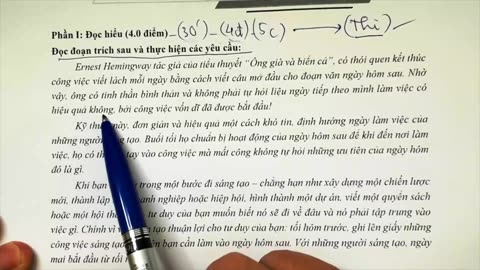 Phần I: Đọc hiểu (4.0 điểm) - (30') - (4đ) (5c) → (Thi) ✓
Đọc đoạn trích sau và thực hiện các yêu cầu:
Ernest Hemingway tác giả của tiểu thuyết "Ông già và biển cả", có thói quen kết thúc
công việc viết lách mỗi ngày bằng cách viết câu mở đầu cho đoạn văn ngày hôm sau. Nhờ
vậy, ông có tinh thần bình thản và không phải tự hỏi liệu ngày tiếp theo mình làm việc có
hiệu quả không, bởi công việc vốn dĩ đã được bắt đầu!
Kỹ này, đơn giản và hiệu quả một cách khó tin, định hướng ngày làm việc của
những người tạo. Buổi tối họ chuẩn bị hoạt động của ngày hôm sau để khi đến nơi làm
việc, họ có tay vào công việc mà mất công không tự hỏi những ưu tiên của ngày hôm
đó là gì.
Khi bạn trong một bước đi sáng tạo – chẳng hạn như xây dựng một chiến lược
mới, thành lập nghiệp hoặc hiệp hội, hình thành một dự án, viết một quyển sách
hoặc một hội tư duy của bạn muốn biết nó sẽ đi về đâu và nó phải tập trung vào
việc gì. Chính vì tạo thuận lợi cho tư duy của bạn: tối hôm trước, ghi lên giấy những
công việc sáng bạn cần làm vào ngày hôm sau. Với những người sáng tạo, ngày
mai bắt đầu từ tối